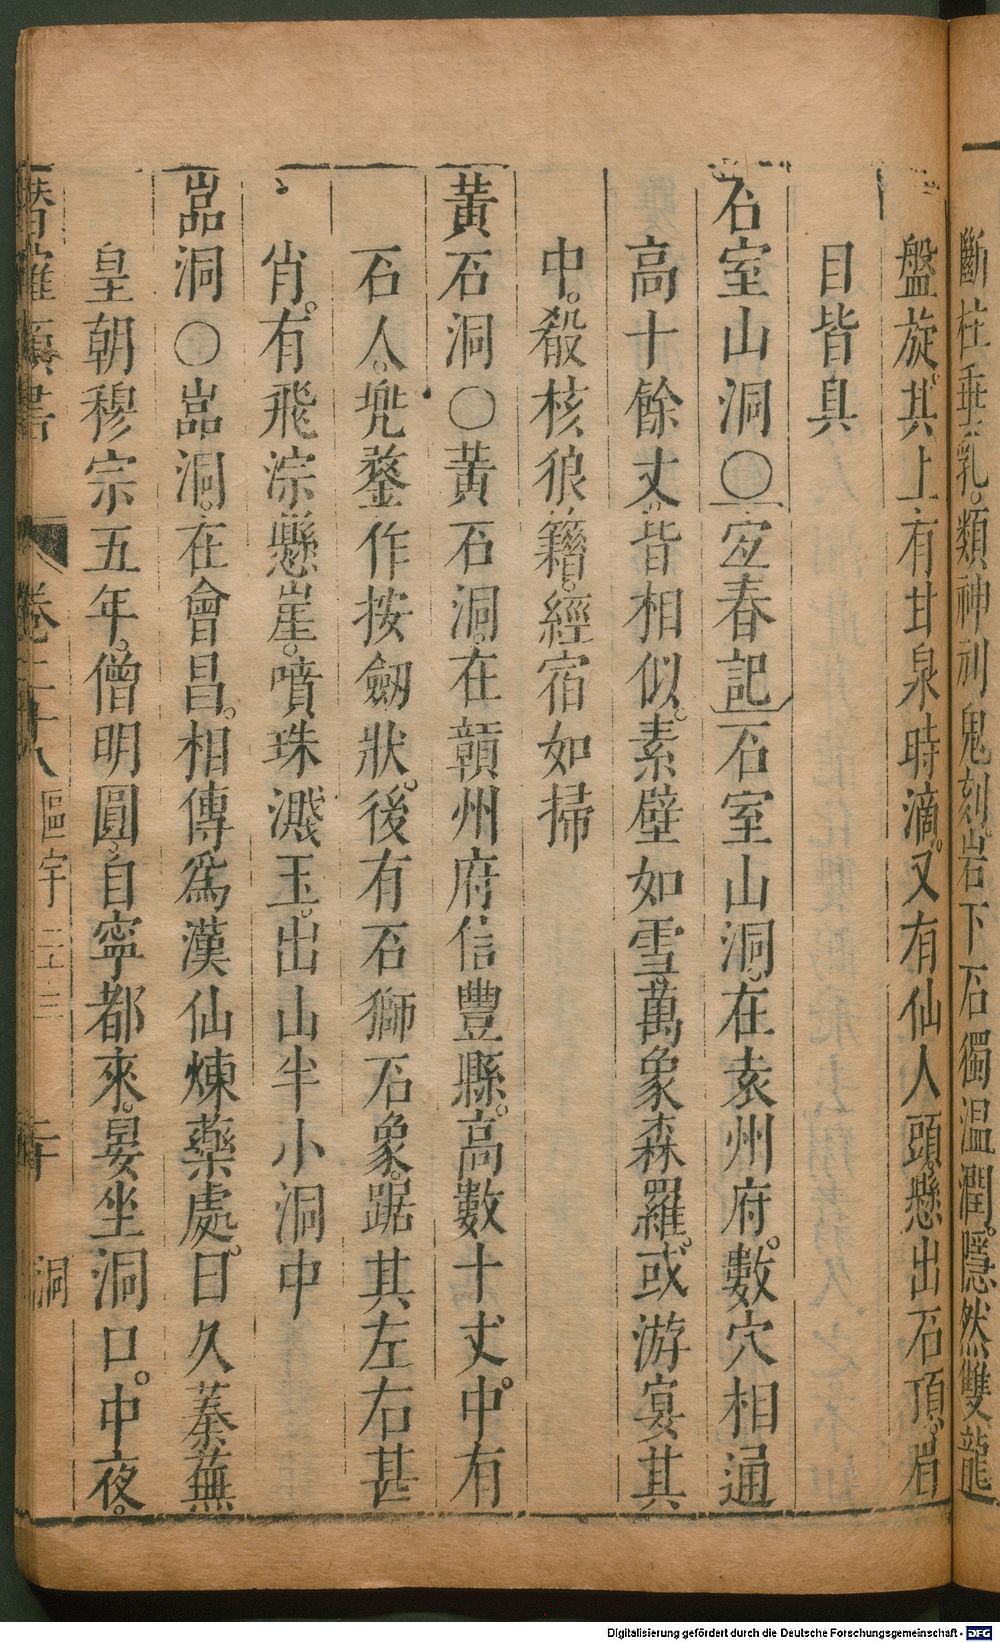 斷柱垂乳。類神刓鬼刻。岩下石獨温潤。隱然雙龍
盤旋。其上有甘泉時滴。又有仙人頭。懸出石頂。眉
目皆具
石室山洞〇宜春記石室山洞。在袁州府。數穴相通
高十餘丈。皆相似。素壁如雪。萬象森羅。或游宴其
中。殽核狼籍。經宿如掃
黃石洞〇黃石洞。在贛州府信豐縣。高數十丈。中有
石人。兠鍪作按劒狀。後有石獅石象。踞其左右甚
肖。有飛淙懸崖。噴珠濺玉。出山半小洞中
嵓洞〇嵓洞。在會昌。相傳爲漢仙煉藥處。日久蓁蕪
皇朝穆宗五年。僧明圓。自寧都來。晏坐洞口。中夜。
潛確類書
卷二十八 區宇二十三 二十 洞
Digitalisierung gefördert durch die Deutsche Forschungsgemeinschaft - DFG